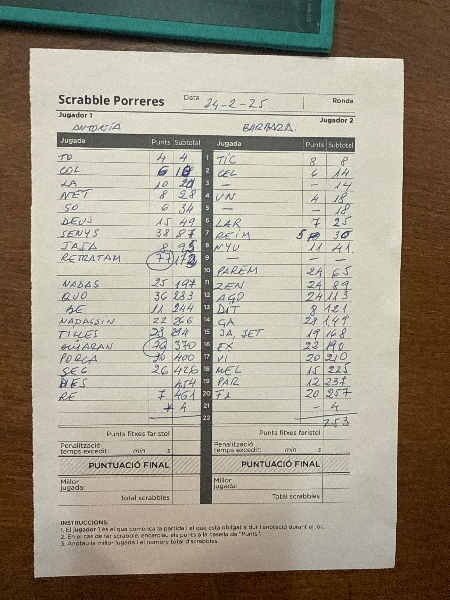 Scrabble Porreres Data 24-2-25 Ronda
Jugador 1 Jugador 2
ANTONIA BARBARA
Jugada Punts Subtotal Jugada Punts Subtotal
TO 4 4 1 TIC 8 8
COL 6 10 2 CEL 6 14
LA 10 3 — — 14
NET 8 28 4 VN 4 18
SO 6 34 5 — — 18
DEUS 15 49 6 LAR 7 25
SENYS 38 87 7 REIM 5 30
8 95 8 NYU 11 41
RETRATAM 77 172 9 — —
10 PAREM 24 65
NADAS 25 197 11 ZEN 24 89
QUO 36 233 12 AGO 24 113
BE 11 244 13 DIT 8 121
22 266 14 GA 28 149
TILLES 28 294 15 JA, JET 19 168
76 370 16 EX 22 190
PORCA 30 400 17 VI 20 210
SEC 26 426 18 MEL 15 225
454 19 PAR 12 237
RE 7 461 20 FA 20 257
4 21 — 4
22 253
Punts fitxes faristol Punts fitxes faristol
Penalització
temps excedit: min s Penalització
temps excedit: min s
PUNTUACIÓ FINAL PUNTUACIÓ FINAL
Millor
jugada: Millor
jugada:
Total scrabbles Total scrabbles
INSTRUCCIONS:
1. El jugador 1 és el que comença la partida i el que està obligat a dur l'anotació durant el joc.
2. En el cas de fer scrabble, encerclau els punts a la casella de "Punts".
3. Anotau la millor jugada i el nombre total d'scrabbles.